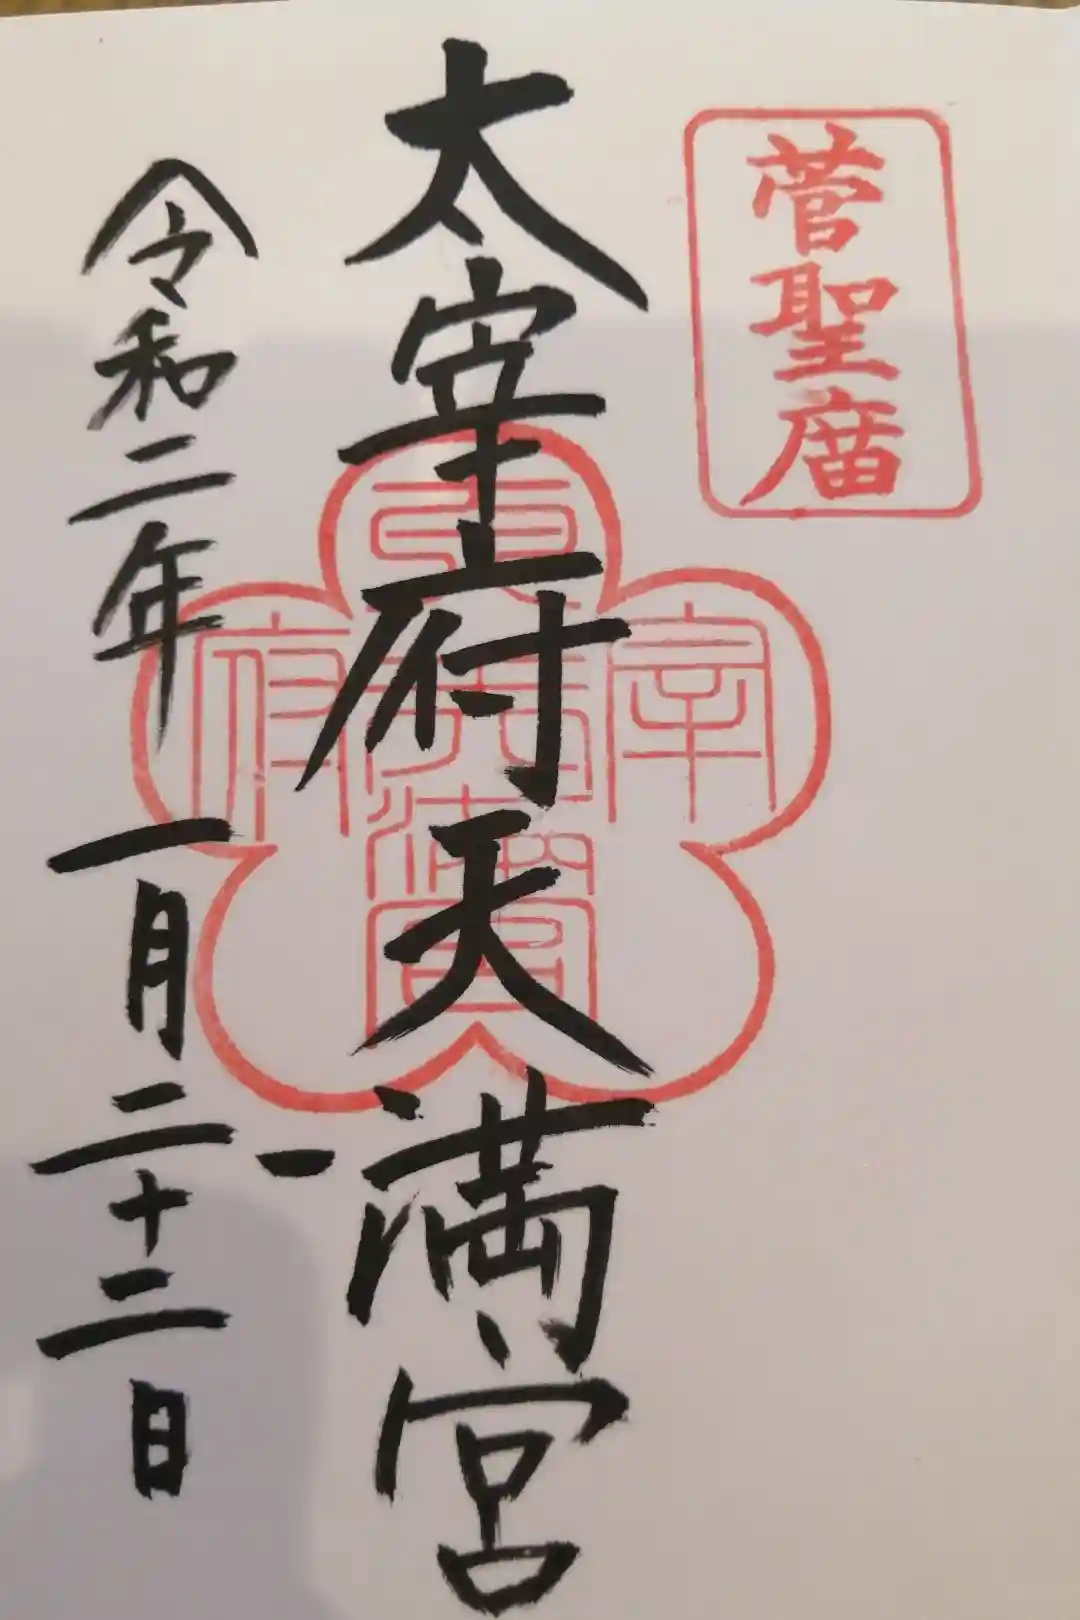 菅聖庿
太宰府天満宮
令和二年 一月二十二日